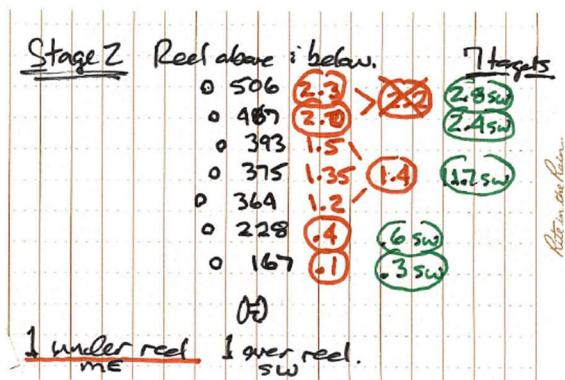 Stage 2 Reel above & below. 7 targets
506 2.3 2.2 2.8 sw
467 2.0 2.4 sw
393 1.5
375 1.35 1.4 1.7 sw
364 1.2
228 .4 .6 sw
167 .1 .3 sw
1 under reel 1 over reel.
ME SW
Rite in the Rain